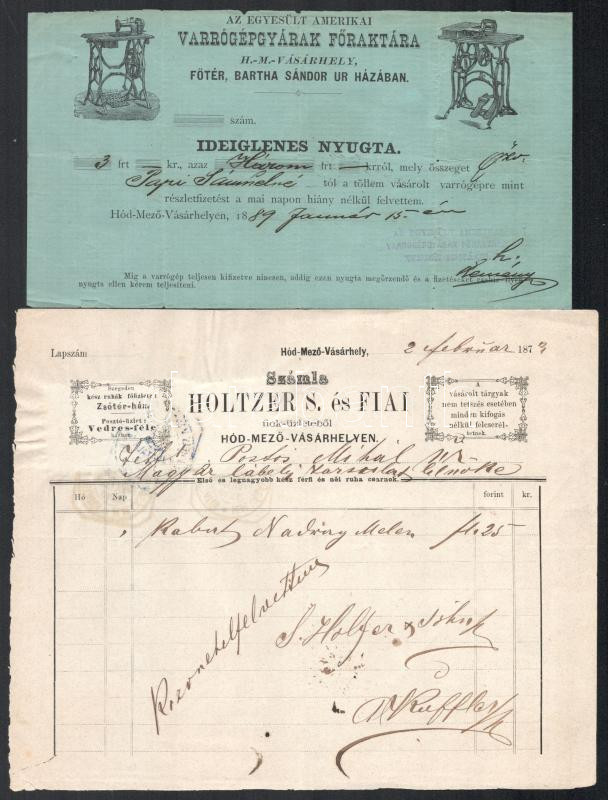 AZ EGYESÜLT AMERIKAI
VARRÓGÉPGYÁRAK FŐRAKTÁRA
H.-M.-VÁSÁRHELY,
FŐTÉR, BARTHA SÁNDOR UR HÁZÁBAN.
szám.
IDEIGLENES NYUGTA.
3 frt — kr., azaz Három frt — krról, mely összeget Özv.
Papi Sámuelné tól a tőllem vásárolt varrógépre mint
részletfizetést a mai napon hiány nélkül felvettem.
Hód-Mező-Vásárhelyen, 1889 Január 15-én
Mig a varrógép teljesen kifizetve nincsen, addig ezen nyugta megőrzendő és a fizetéseket
nyugta ellen kérem teljesíteni.
Lapszám
Hód-Mező-Vásárhely, 2 február 1873
Számla
HOLTZER S. és FIAI
fiók-üzletéből
HÓD-MEZŐ-VÁSÁRHELYEN.
Szegeden
kész ruhák főüzlete:
Zsótér-ház.
Posztó-üzlet:
Vedres-féle
házban.
A
vásárolt tárgyak
nem tetszés esetében
minden kifogás
nélkül felcserél-
tetnek.
Mihál Ur
Magyar
Első és legnagyobb kész férfi és női ruha csarnok.
Hó Nap forint kr.
1 Kabat Nadrág Melen f. 25
S. Holtzer & Söhne